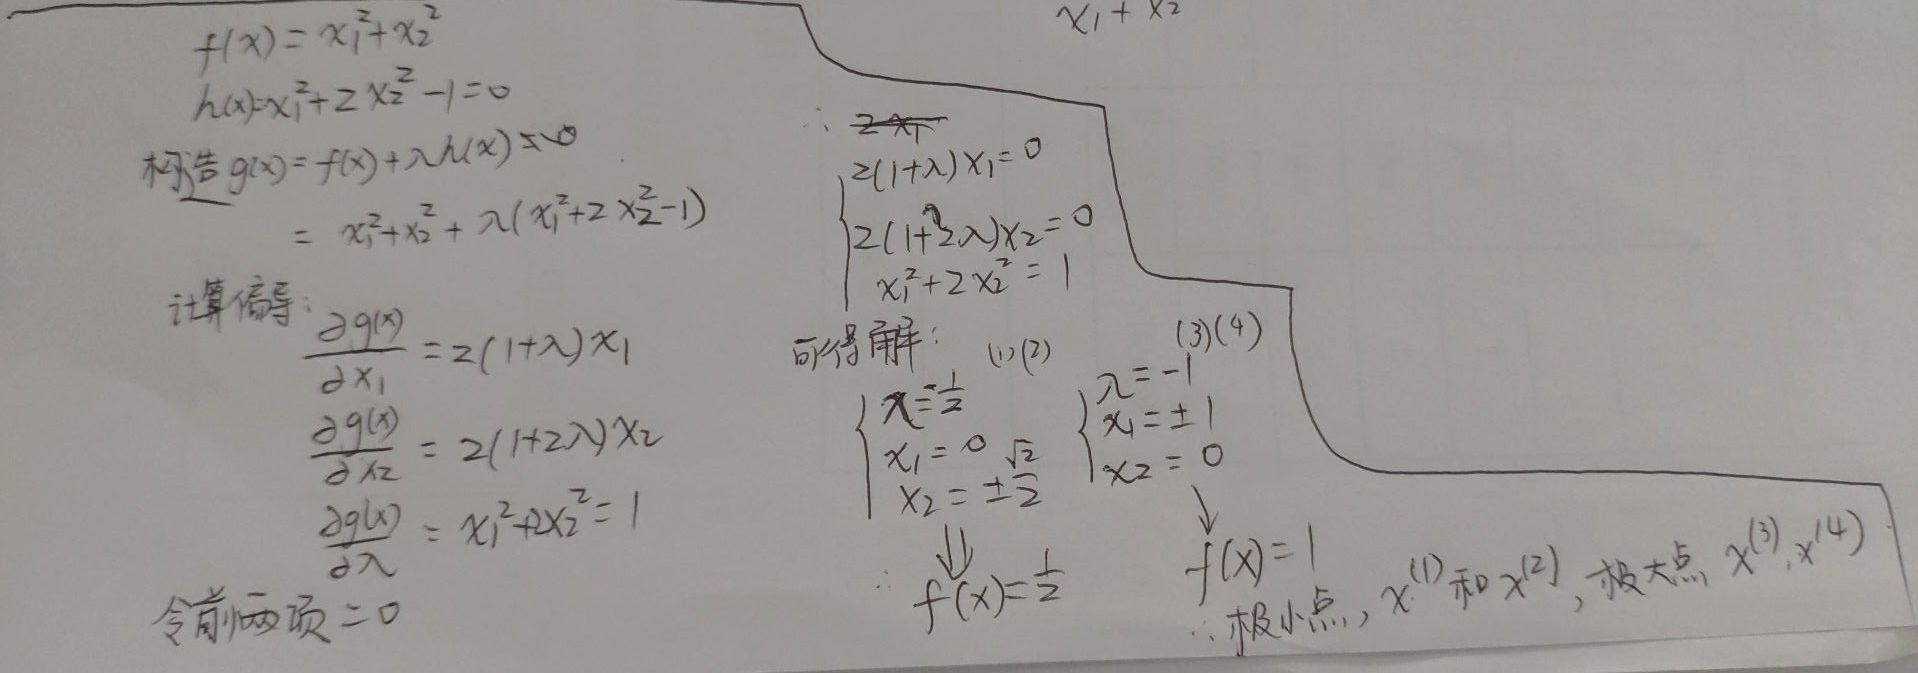 x₁ + x₂
f(x) = x₁² + x₂²
h(x) = x₁² + 2x₂² - 1 = 0
构造 g(x) = f(x) + λh(x)
= x₁² + x₂² + λ(x₁² + 2x₂² - 1)
计算偏导:
∂g(x)/∂x₁ = 2(1+λ)x₁
∂g(x)/∂x₂ = 2(1+2λ)x₂
∂g(x)/∂λ = x₁² + 2x₂² = 1
令前两项 = 0
∴ 2x₁
2(1+λ)x₁ = 0
2(1+2λ)x₂ = 0
x₁² + 2x₂² = 1
可得解: (1)(2) (3)(4)
λ = -1/2
x₁ = 0
x₂ = ±√2/2
λ = -1
x₁ = ±1
x₂ = 0
∴ f(x) = 1/2
f(x) = 1
∴ 极小点, x⁽¹⁾ 和 x⁽²⁾, 极大点 x⁽³⁾, x⁽⁴⁾